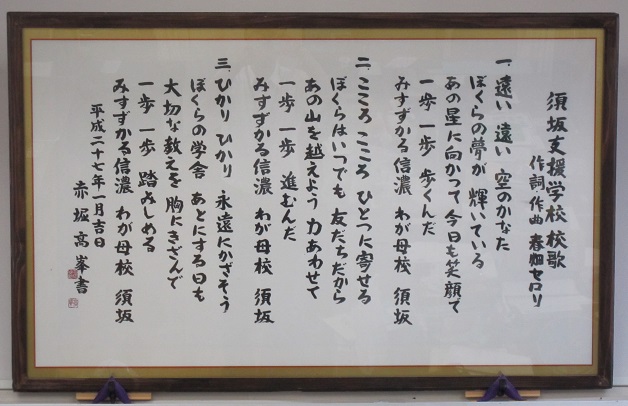 須坂支援学校 校歌
作詞・作曲 春畑セロリ
一、遠い 遠い 空のかなた
ぼくらの夢が 輝いている
あの星に向かって 今日も笑顔で
一歩 一歩 歩くんだ
みすずかる信濃 わが母校 須坂
二、こころ こころ ひとつに寄せる
ぼくらはいつでも 友だちだから
あの山を越えよう 力あわせて
一歩 一歩 進むんだ
みすずかる信濃 わが母校 須坂
三、ひかり ひかり 永遠にかざそう
ぼくらの学舎 あとにする日も
大切な教えを 胸にきざんで
一歩 一歩 踏みしめる
みすずかる信濃 わが母校 須坂
平成二十七年一月吉日
赤堀 高峯書